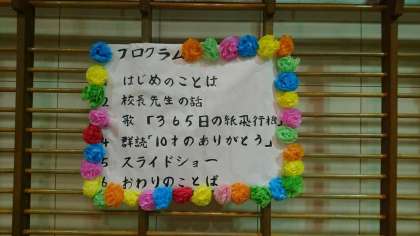 プログラム
はじめのことば
2 校長先生の話
歌「365日の紙飛行機
4 群読「10才のありがとう」
5 スライドショー
6 おわりのことば